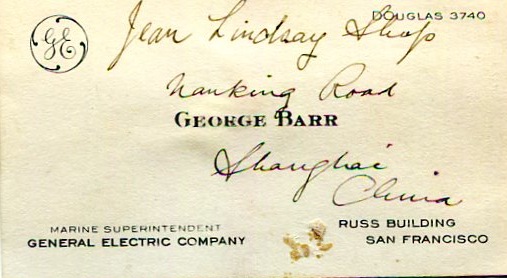 GE
DOUGLAS 3740
Jean Lindsay Shop
Nanking Road
GEORGE BARR
Shanghai
China
MARINE SUPERINTENDENT
GENERAL ELECTRIC COMPANY
RUSS BUILDING
SAN FRANCISCO